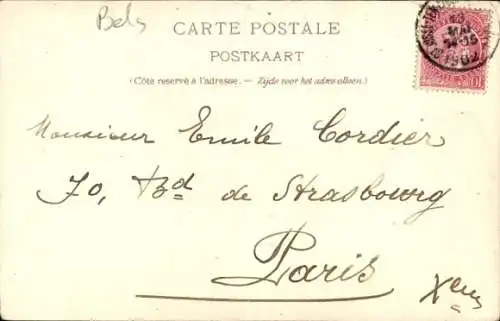 Bels
CARTE POSTALE
POSTKAART
(Côté reservé à l'adresse. — Zijde voor het adres alleen.)
Monsieur Emile Cordier
70, Bd de Strasbourg
Paris
Xem
1902